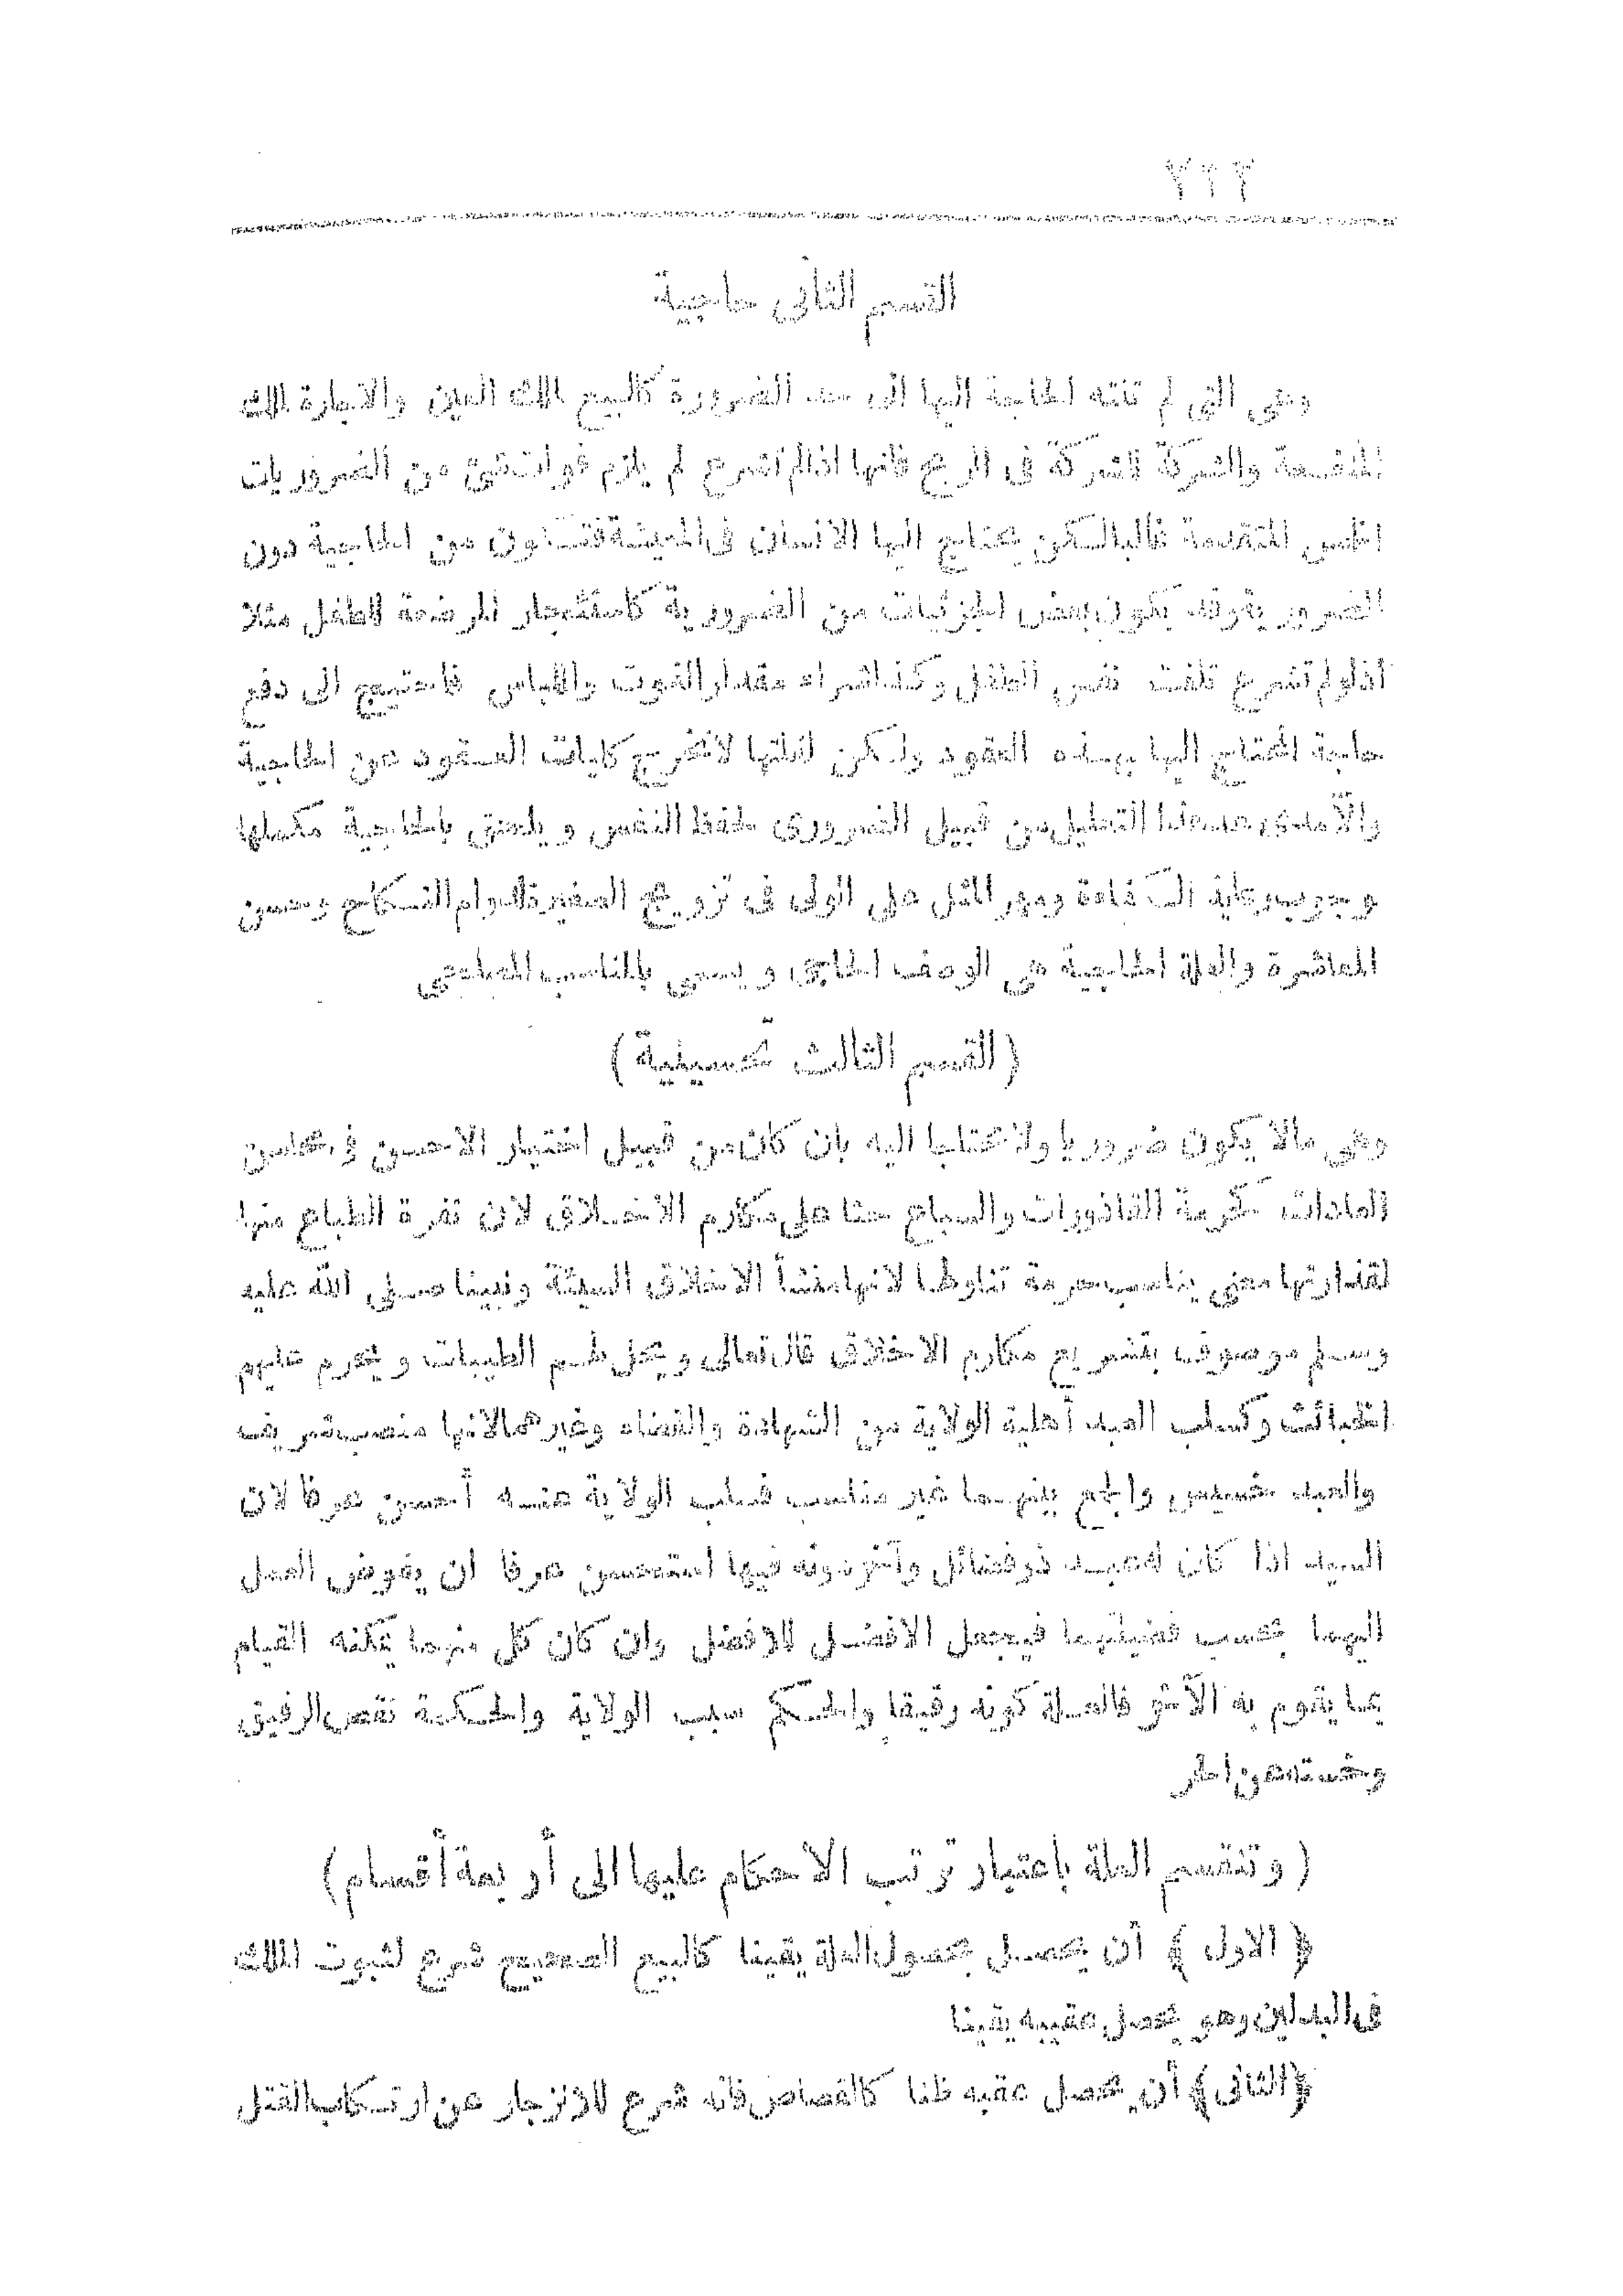 ٢٢٢
القسم الثانى حاجية
وهى التى لم تنته الحاجة اليها الى حد الضرورة كالبيع لملك العين والاجارة لملك
المنفعة والشركة للشركة فى الربح فانها اذا لم تشرع لم يلزم فوات شئ من الضروريات
الخمس المتقدمة غالبا لكن يحتاج اليها الانسان فى المعيشة فتكون من الحاجية دون
الضرورية وقد يكون بعض الجزئيات من الضرورية كاستئجار المرضعة للطفل مثلا
اذ لو لم تشرع تلفت نفس الطفل وكذا شراء مقدار القوت واللباس فاحتيج الى دفع
حاجة المحتاج اليها بهذه العقود ولكن لقلتها لا تخرج كليات العقود عن الحاجية
والآمدى عد هذا التعليل من قبيل الضرورى لحفظ النفس ويلحق بالحاجية مكملها
وجوب رعاية الكفاءة ومهر المثل على الولى فى تزويج الصغيرة لدوام النكاح وحسن
المعاشرة والعلة الحاجية هى الوصف الحاجى ويسمى بالمناسب المصلحى
(القسم الثالث تحسينية)
وهى مالا يكون ضروريا ولا محتاجا اليه بان كان من قبيل اختيار الاحسن فى محاسن
العادات كحرمة القاذورات والسباع حثا على مكارم الاخلاق لان نفرة الطباع منها
لقذارتها معنى يناسب حرمة تناولها لانها منشأ الاخلاق السيئة ونبينا صلى الله عليه
وسلم موصوف بتشريع مكارم الاخلاق قال تعالى ويحل لهم الطيبات ويحرم عليهم
الخبائث وكسلب العبد أهلية الولاية من الشهادة والقضاء وغيرهما لانها منصب شريف
والعبد خسيس والجمع بينهما غير مناسب فسلب الولاية عنه أحسن عرفا لان
السيد اذا كان له عبد ذو فضائل وآخر دونه فيها استحسن عرفا ان يفوض العمل
اليهما بحسب فضيلتهما فيجعل الافضل للافضل وان كان كل منهما يمكنه القيام
بما يقوم به الآخر فالعلة كونه رقيقا والحكم سلب الولاية والحكمة نقص الرقيق
وخسته عن الحر
(وتنقسم العلة باعتبار ترتب الاحكام عليها الى أربعة أقسام)
﴿الاول﴾ أن يحصل بحصول العلة يقينا كالبيع الصحيح شرع لثبوت الملك
فى البدلين وهو يحصل عقيبه يقينا
﴿الثانى﴾ أن يحصل عقبه ظنا كالقصاص فانه شرع للانزجار عن ارتكاب القتل